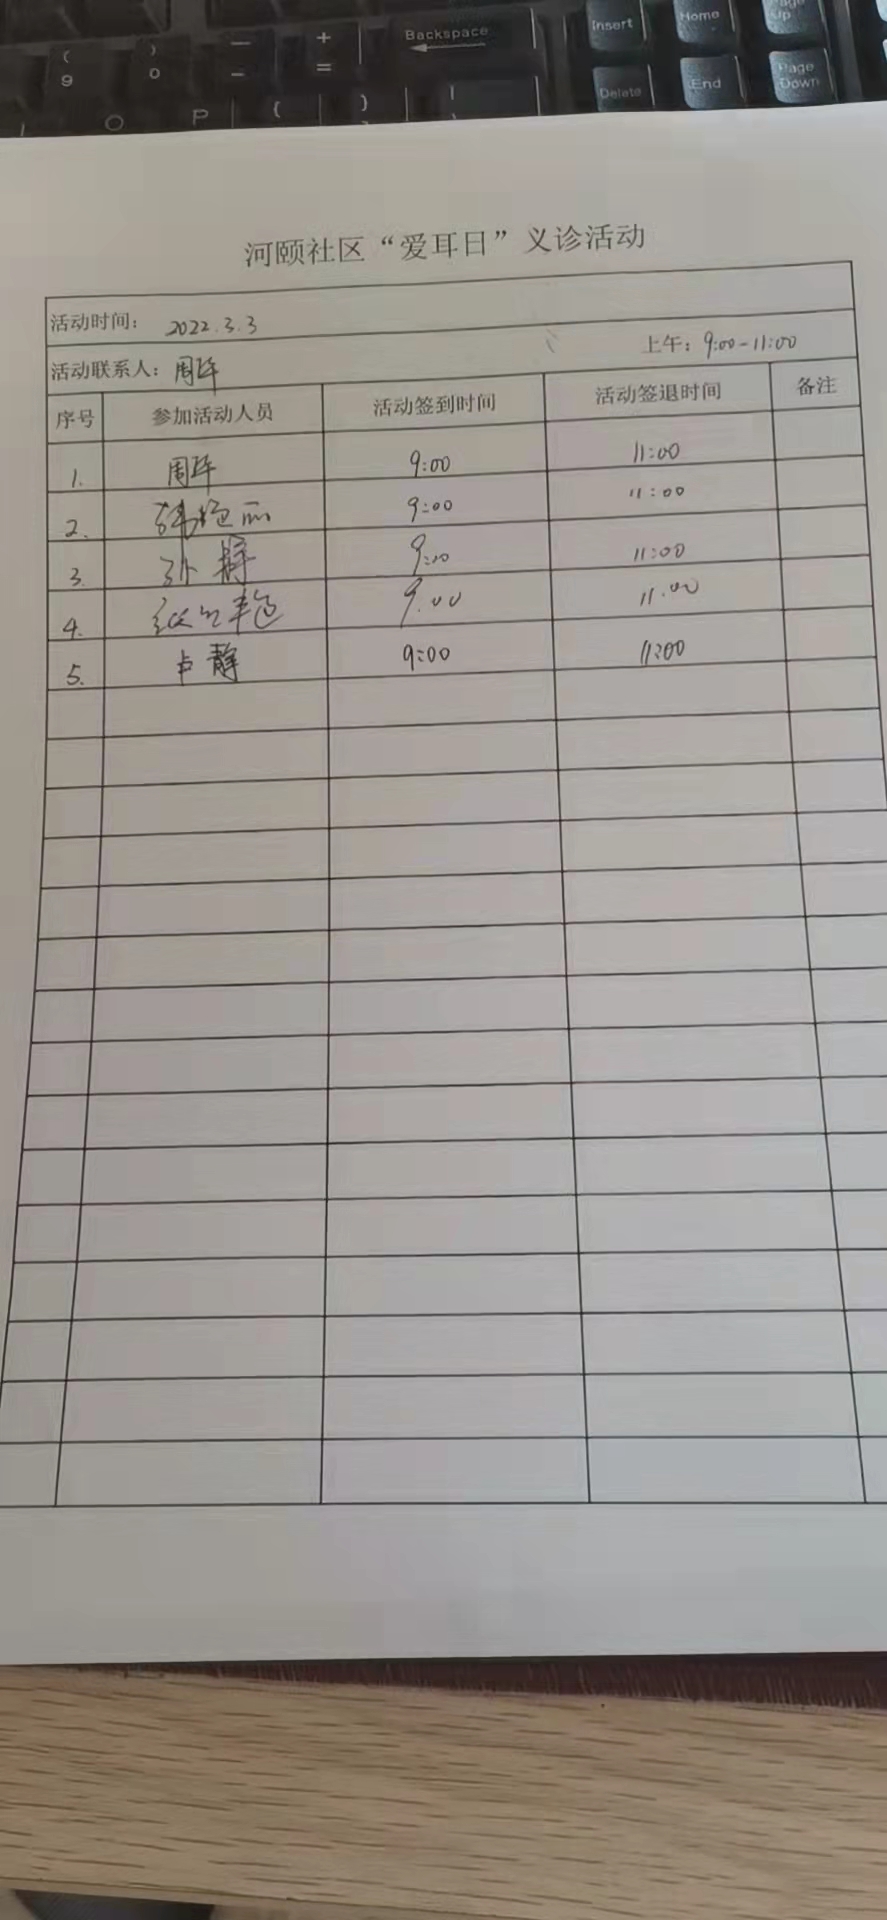 Backspace
Insert
Home
Page Up
( 9
) 0
— -
+ =
Delete
End
Page Down
O
P
{
}
河颐社区“爱耳日”义诊活动
活动时间： 2022.3.3
活动联系人：周 上午：9:00-11:00
序号 参加活动人员 活动签到时间 活动签退时间 备注
1. 周 9:00 11:00
2. 韩艳丽 9:00 11:00
3. 孙静 9:00 11:00
4. 9.00 11.00
5. 卢静 9:00 11:00